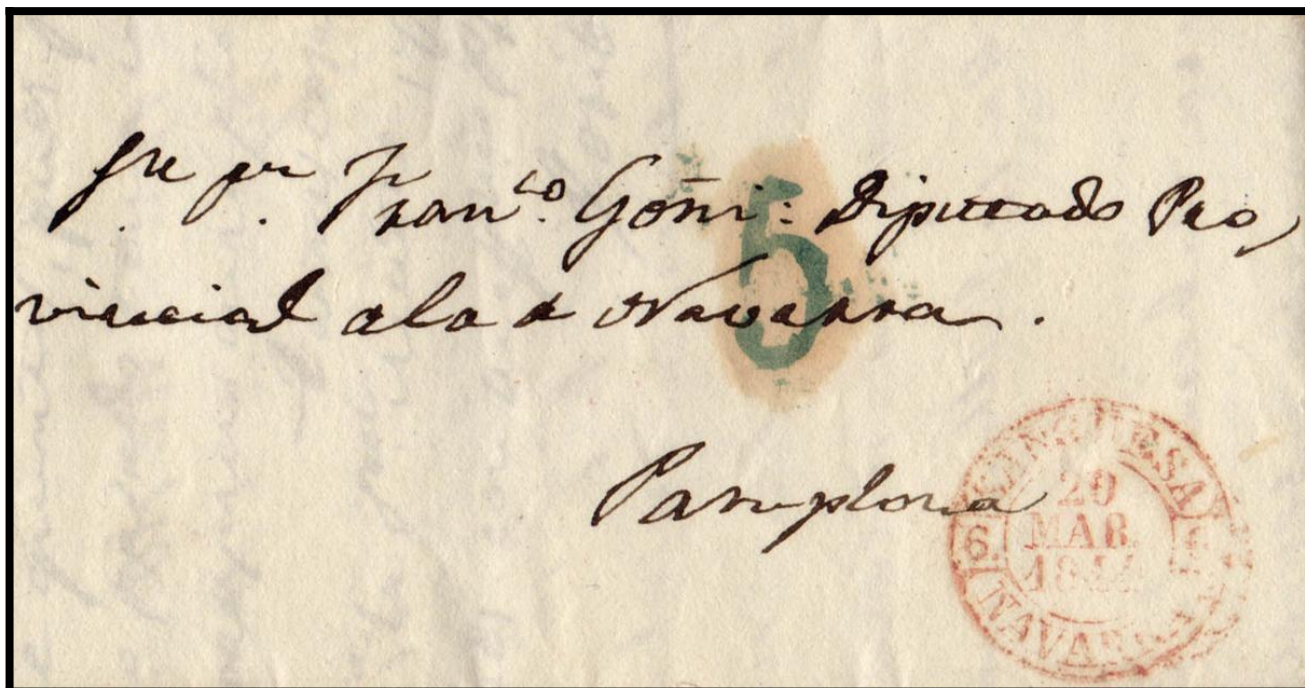 Franco. Goñi: Diputado Pro
vincial ala de Navarra.
5
Pamplona
SANGUESA
20
MAR.
6.
NAVARRA